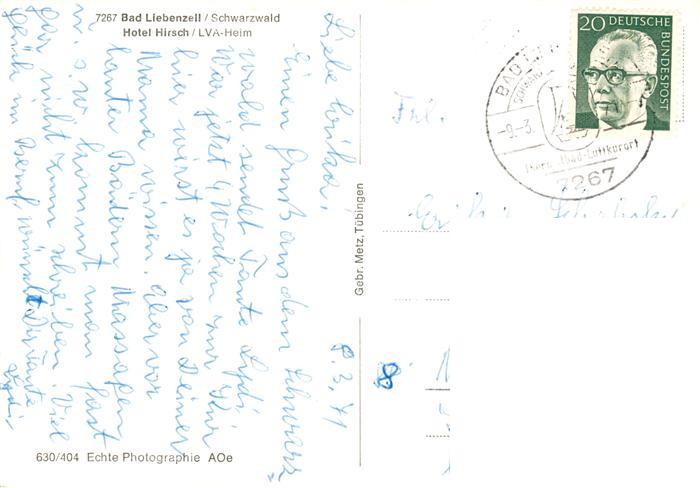 7267 Bad Liebenzell / Schwarzwald
Hotel Hirsch / LVA-Heim
8.3.71
Liebe Erika!
Einen Gruß aus dem Schwarz-
wald sendet Tante Lydi.
War jetzt 4 Wochen zur Kur
hier wirst es ja von Deiner
Mama wissen. Aber vor
lauter Bädern Massagen
u.s.w kommt man fast
gar nicht zum schreiben. Viel
Glück im Beruf wünscht Dir Tante
Lydi.
630/404 Echte Photographie AOe
Gebr. Metz, Tübingen
20 DEUTSCHE BUNDESPOST
BAD
-9.-3.
Luftkurort
7267
Frl.
8